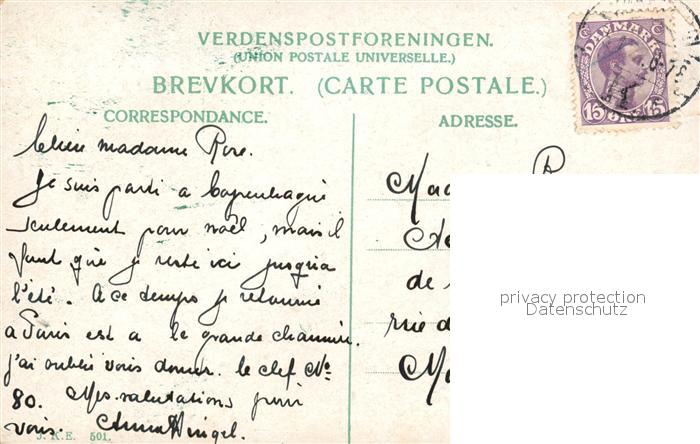 VERDENSPOSTFORENINGEN.
(UNION POSTALE UNIVERSELLE.)
BREVKORT. (CARTE POSTALE.)
CORRESPONDANCE.
ADRESSE.
DANMARK
15 ØRE 15
madame Rose.
Je suis parti a Copenhague
seulement pour noël, mais il
faut que je reste ici jusqua
l'été. A ce temps je retourne
a Paris est a le grande chaumière.
j'ai oublié vous donner le clef No
80. Mes salutations pour
vous. Anna
Mad
de
rue d
privacy protection
Datenschutz
J. K. E. 501.